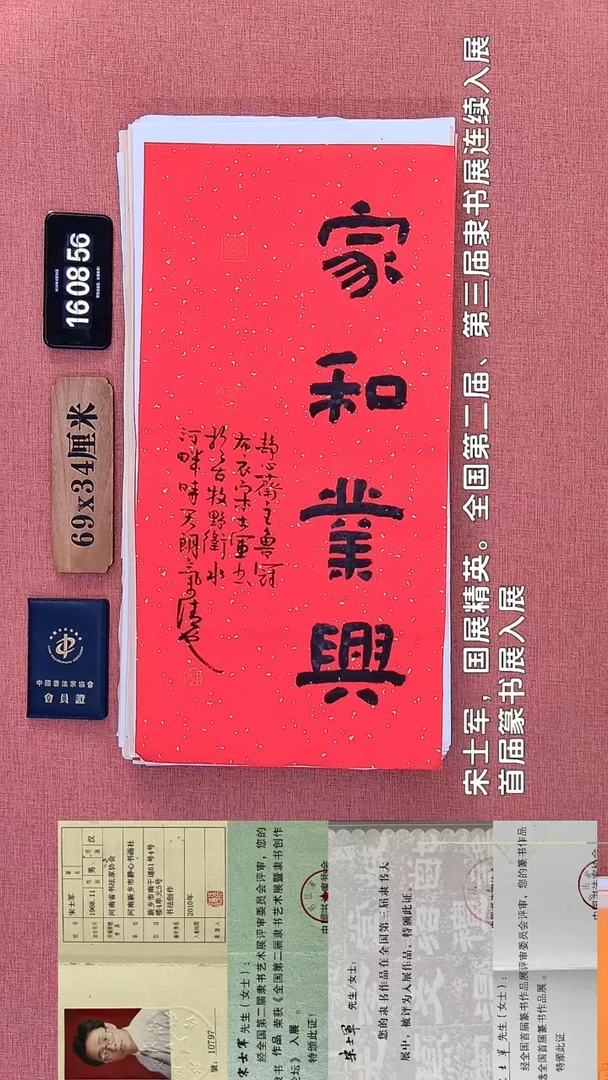 宋士军，国展精英。全国第二届、第三届隶书展连续入展
首届篆书展入展
家和業興
16:08 56
69x34厘米
中國書法家協會
會員證
宋士军
男
汉
1968.11
河南省书法家协会
河南新乡市静心书画社
新乡市南干道61号4号
楼4单元5号
书法创作
2010年
號：10797
宋士军 先生（女士）：
经全国第二届隶书艺术展评审委员会评审，您的
隶书 作品 荣获《全国第二届隶书艺术展暨隶书创作
论坛》入展 。
特颁此证！
宋士军 先生/女士：
您的隶书作品在全国第三届隶书大
展中，被评为入展作品，特颁此证。
士军 先生（女士）：
经全国首届篆书作品展评审委员会评审，您的篆书作品
选全国首届篆书作品展 。
特颁此证